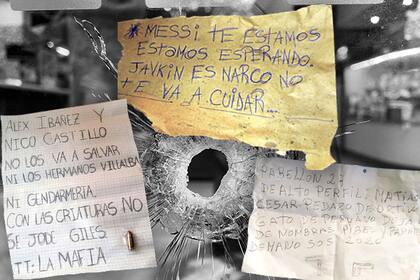 * MESSI TE ESTAMOS
ESTAMOS ESPERANDO.
JAVKIN ES NARCO NO
TE VA A CUIDAR...
ALEX IBAÑEZ Y
NICO CASTILLO
NO LOS VA A SALVAR
NI LOS HERMANOS VILLALBA
NI GENDARMERIA
CON LAS CRIATURAS NO
SE JODE GILES
TT: LA MAFIA
PABELLON 2:
DE ALTO PERFIL: MATIAS
CESAR PEDAZO DE
GATO DE
DE NOMBRAS PIBES
DE MANO SOS 2020